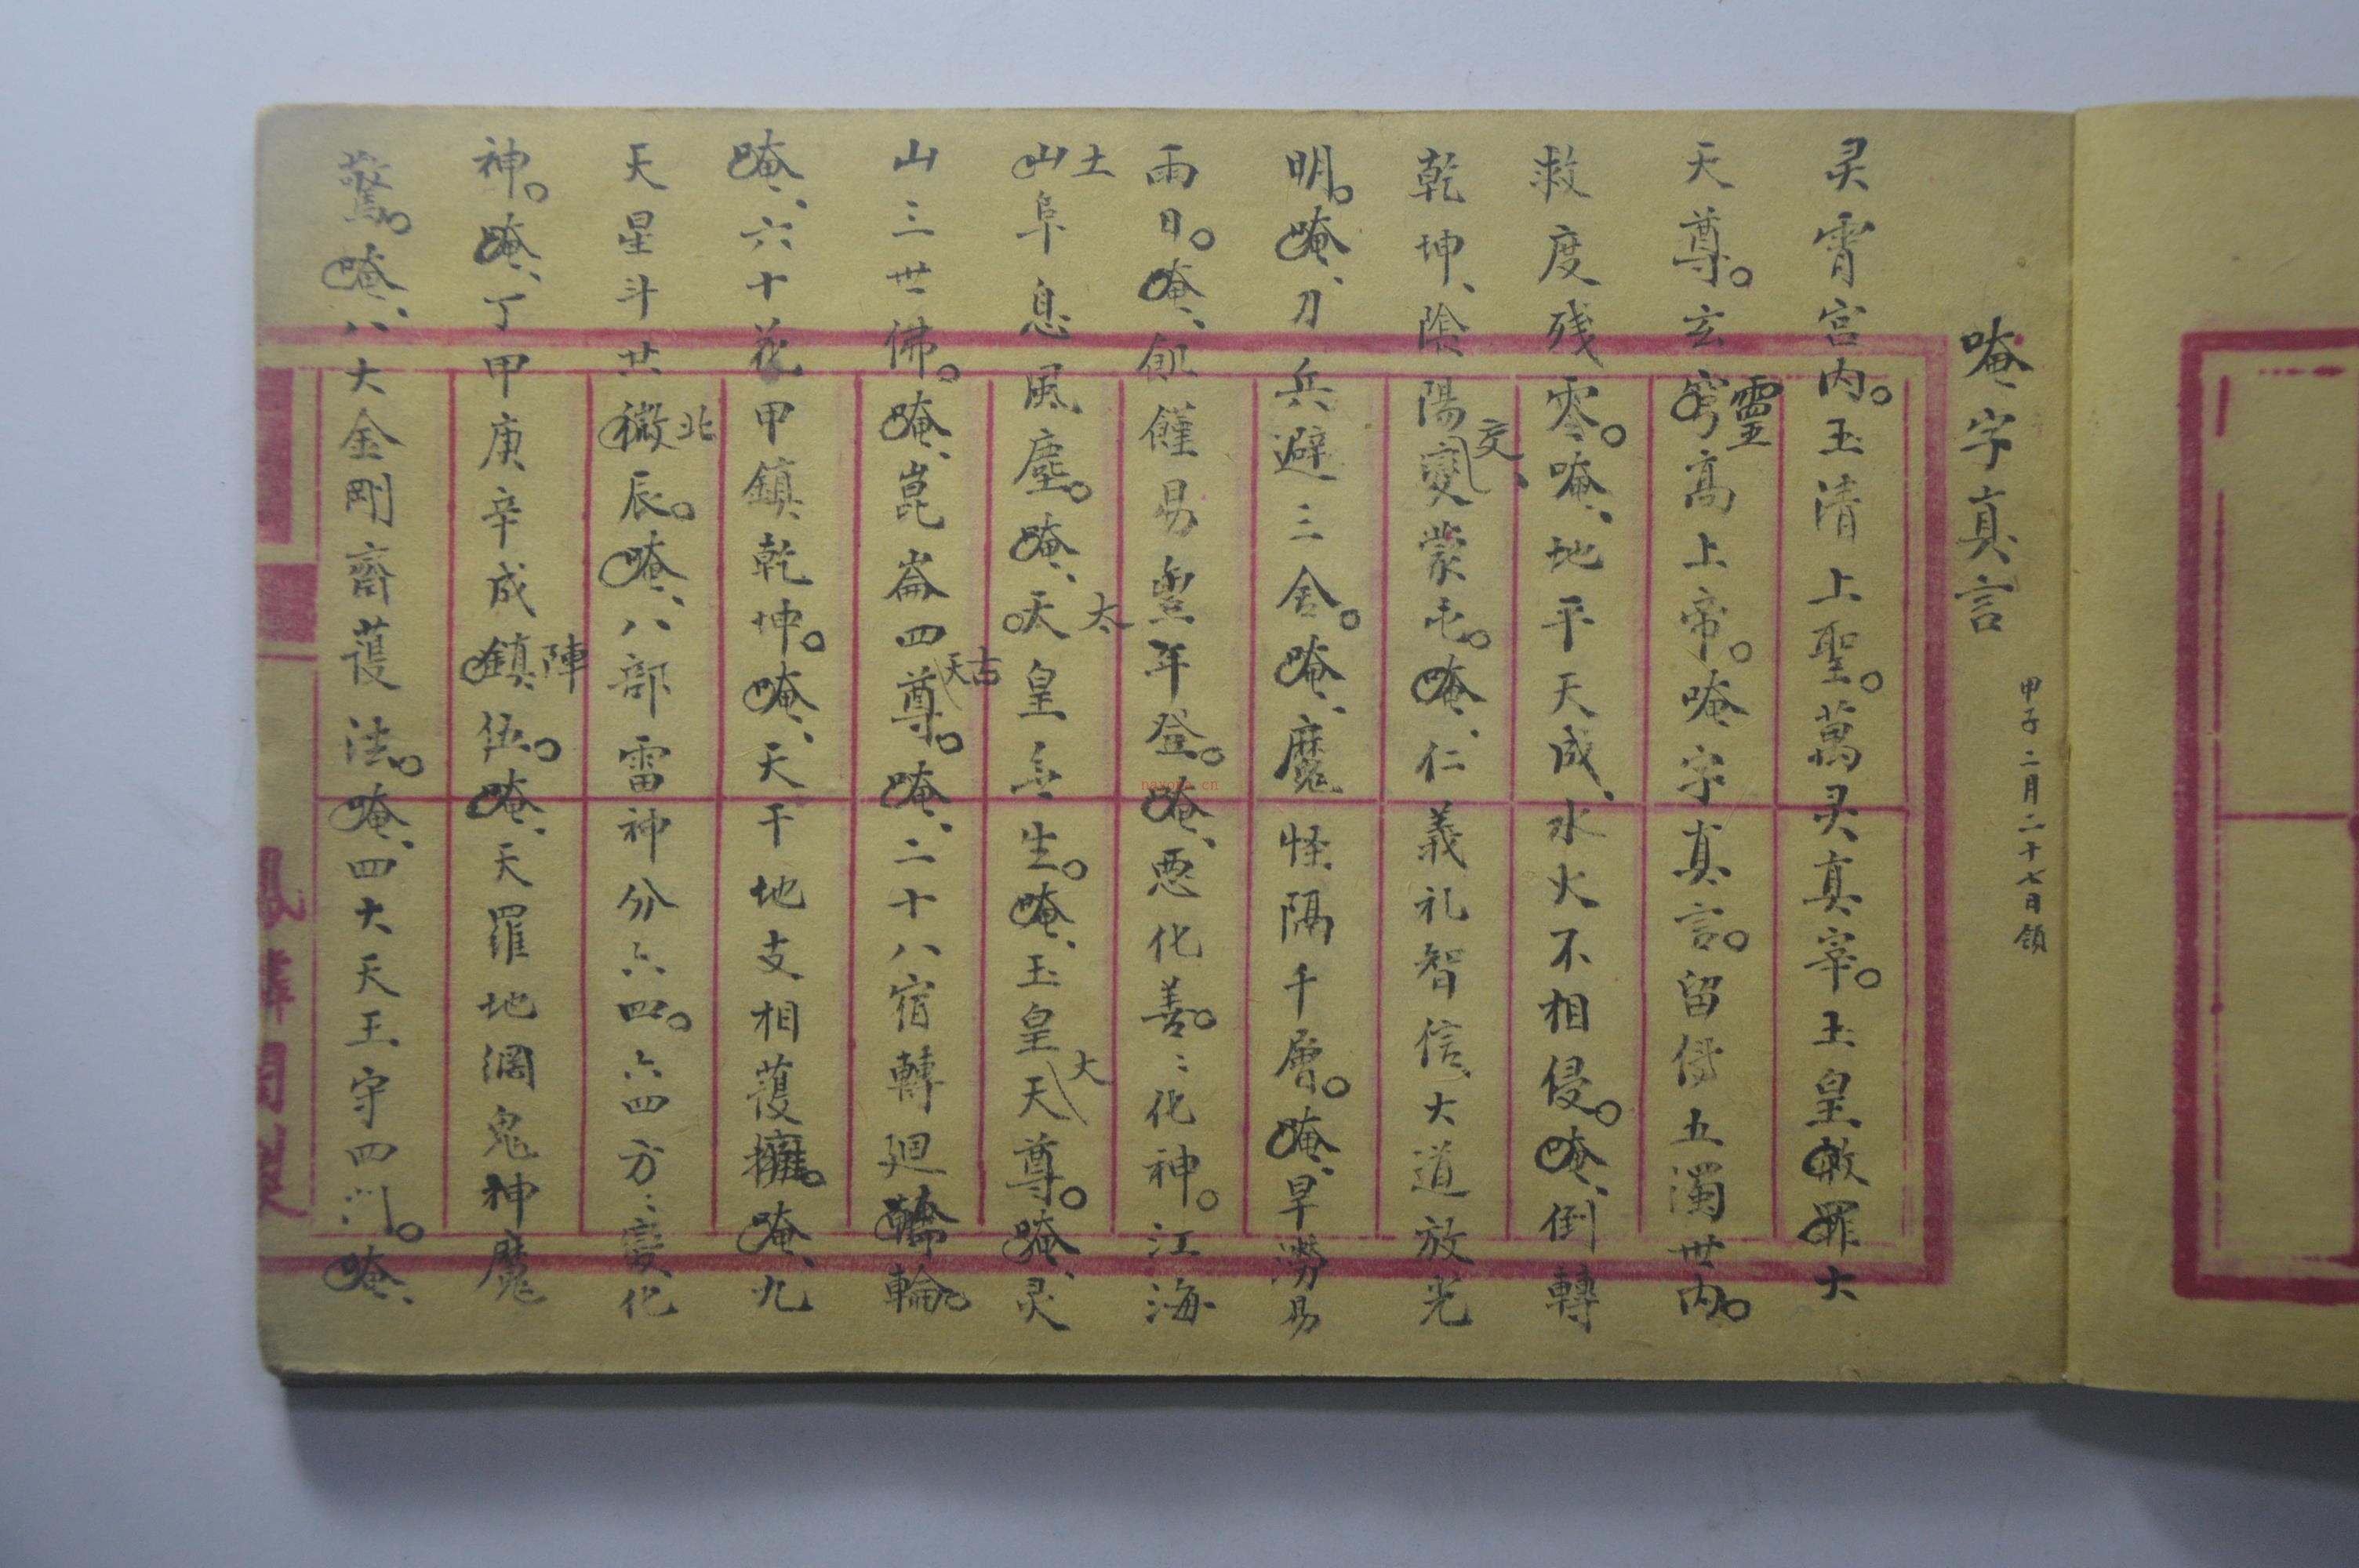 唵字真言
甲子二月二十七日領
灵霄宮内。玉清上聖。萬灵真宰。玉皇赦罪大
天尊。玄窮靈高上帝。唵字真言。留傳五濁世内。
救度残零。唵、地平天成、水火不相侵。唵、倒轉
乾坤、陰陽變交、蒙屯。唵、仁義礼智信、大道放光
明。唵、刀兵避三舍。唵、魔怪隔千層。唵、旱澇易
雨日。唵、飢饉易豊年登。唵、悪化善。〻化神。江海
山土阜息風塵。唵、天太皇無生。唵、玉皇天大尊。唵、灵
山三世佛。唵、崑崙四尊天古。唵、二十八宿轉廻輪輪。
唵、六十花甲鎮乾坤。唵、天干地支相護擁。唵、九
天星斗共微北辰。唵、八部雷神分六四。六四方〻變化
神。唵、丁甲庚辛成鎮陣伍。唵、天羅地網鬼神魔
驚。唵、八大金剛齋護法。唵、四大天王守四门。唵、
naxoan.cn